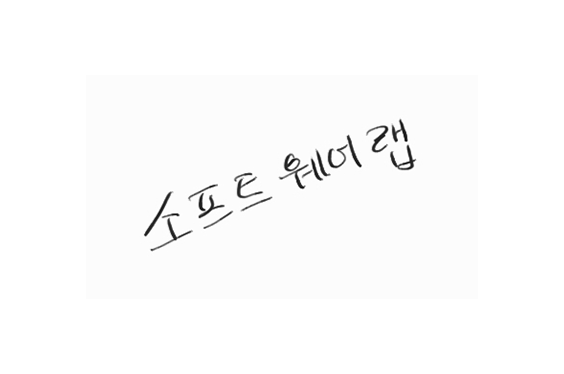 소프트웨어랩